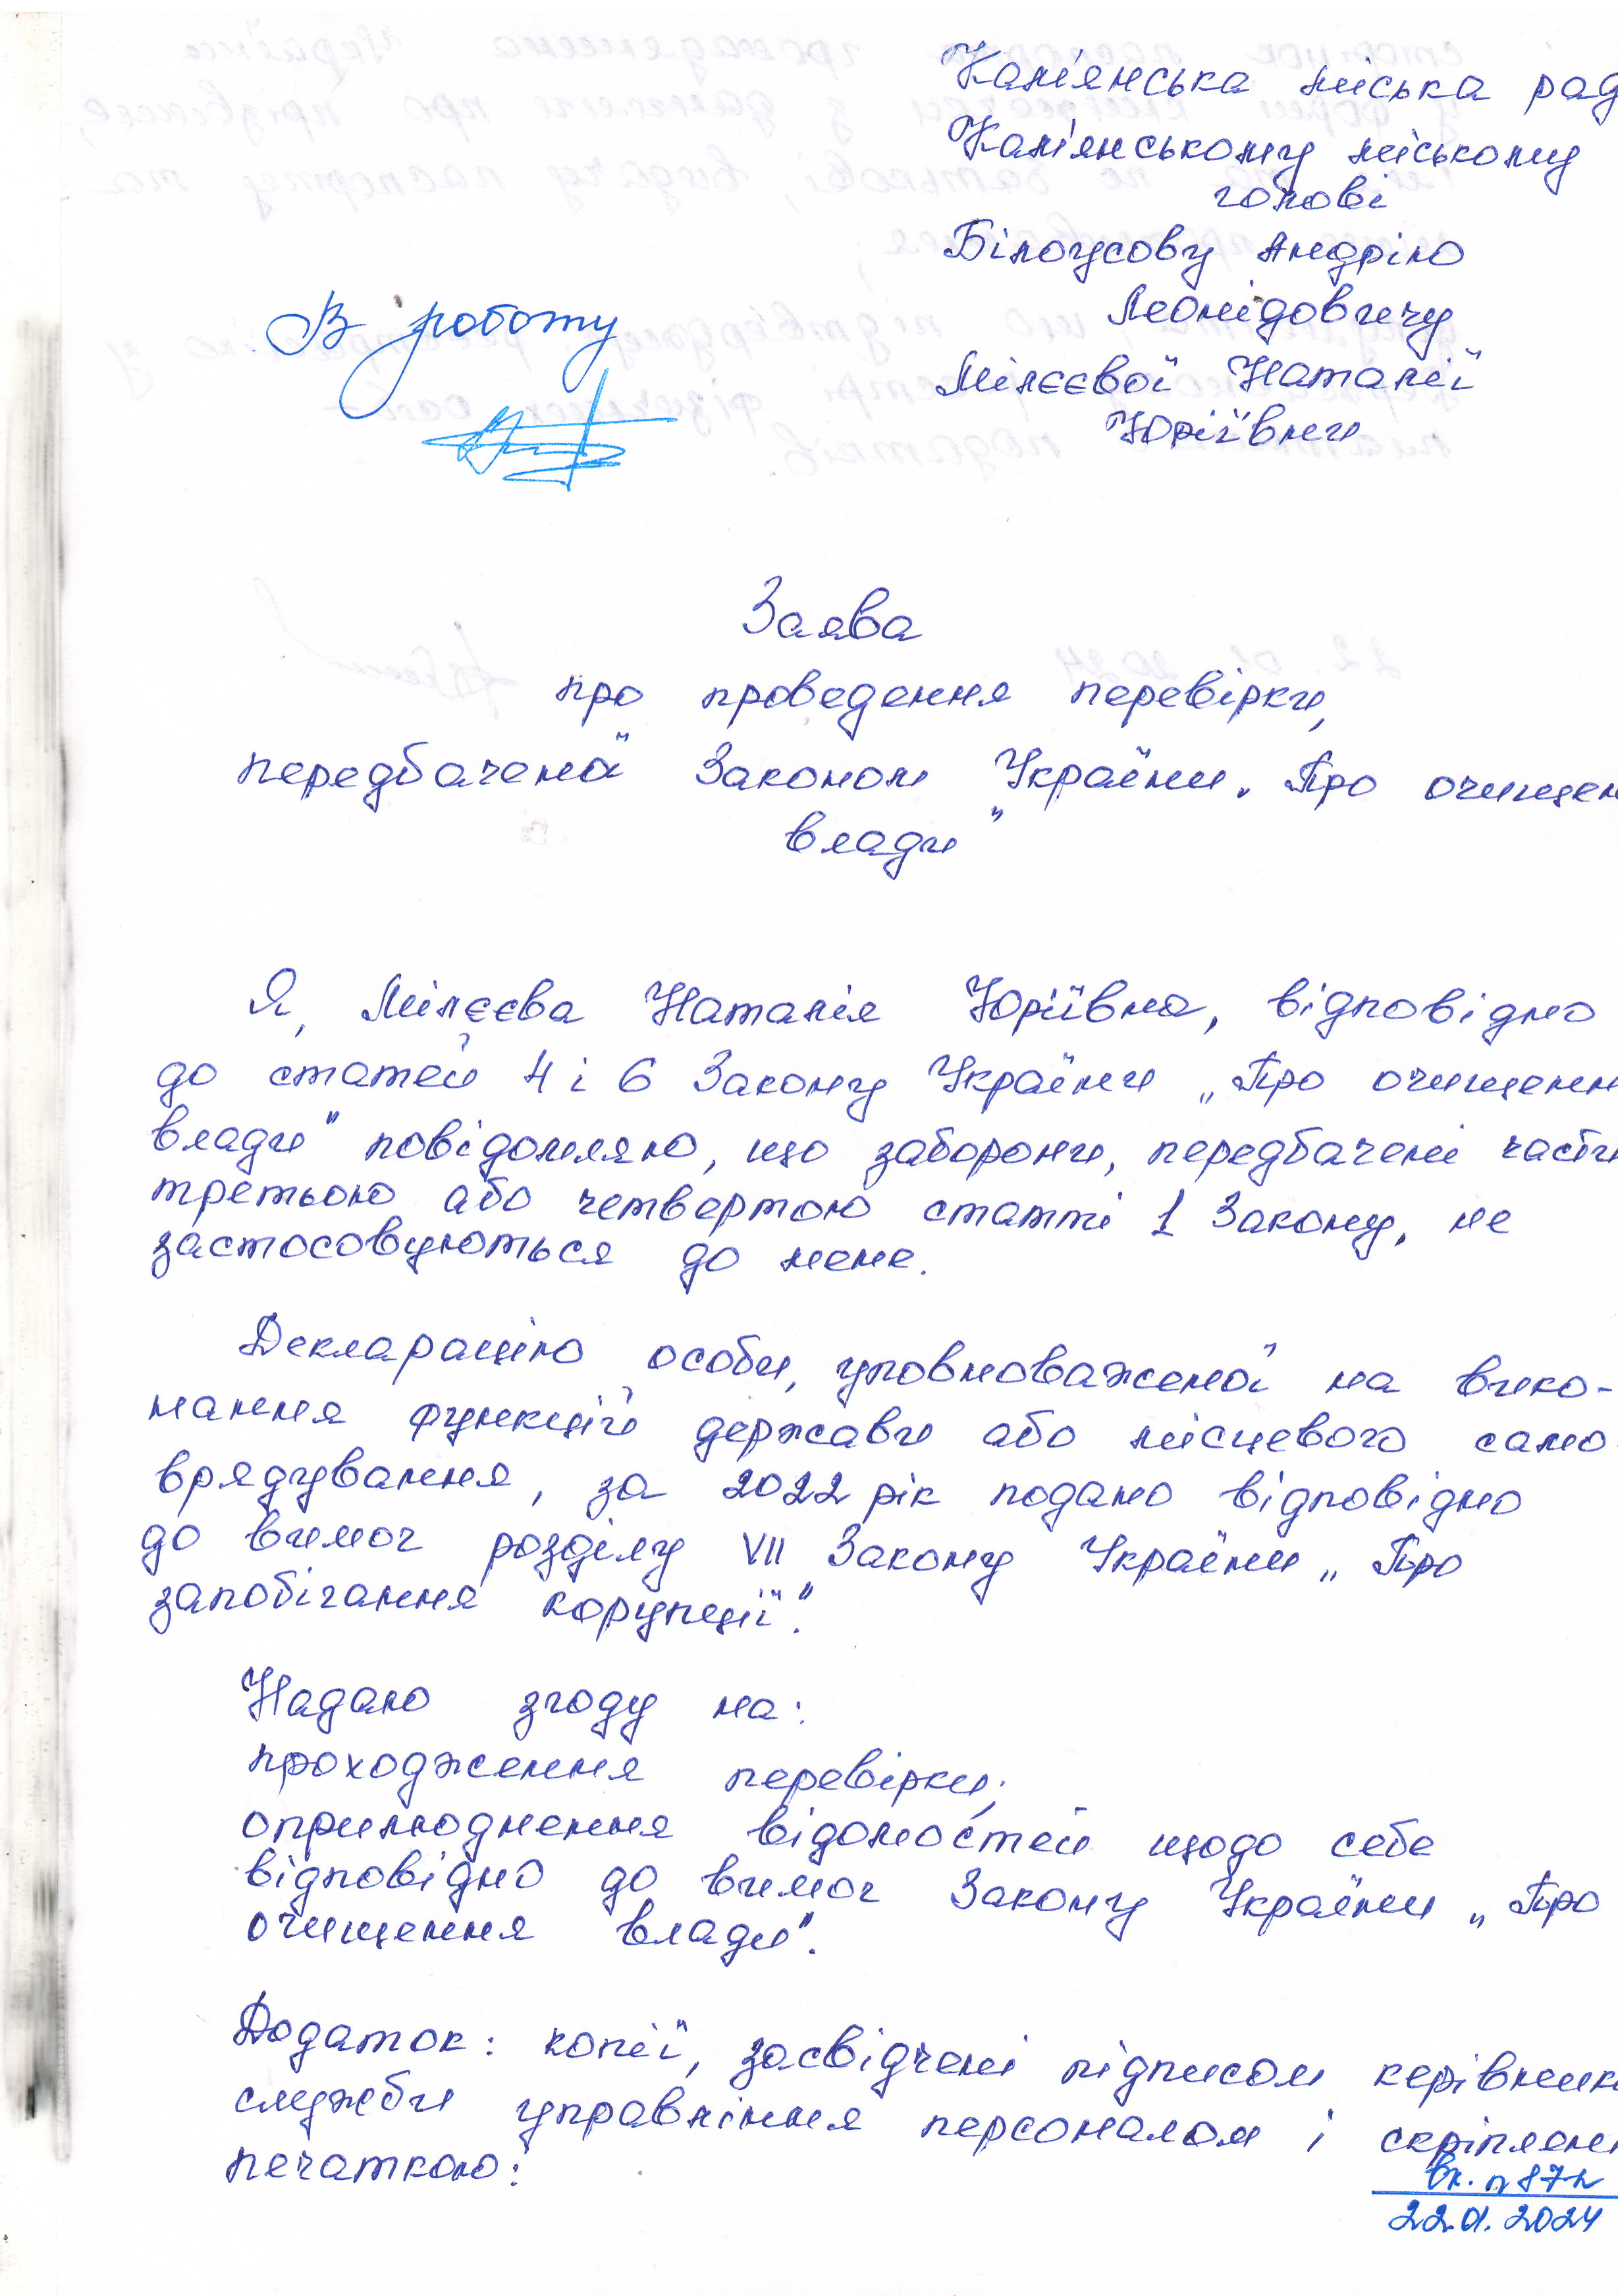 Кам'янська міська рад
Кам'янському міському
голові
Білоусову Андрію
Леонідовичу
Мілєєвої Наталії
Юріївни
В роботу
Заява
про проведення перевірки,
передбаченої Законом України „Про очищен
влади"
Я, Мілєєва Наталія Юріївна, відповідно
до статей 4 і 6 Закону України „Про очищенн
влади" повідомляю, що заборони, передбачені части
третьою або четвертою статті 1 Закону, не
застосовуються до мене.
Декларацію особи, уповноваженої на вико-
нання функцій держави або місцевого само
врядування, за 2022 рік подано відповідно
до вимог розділу VII Закону України „Про
запобігання корупції".
Надаю згоду на:
проходження перевірки;
оприлюднення відомостей щодо себе
відповідно до вимог Закону України „Про
очищення влади".
Додаток: копії, засвідчені підписом керівника
служби управління персоналом і скріплені
печаткою:
вх.
22.01.2024